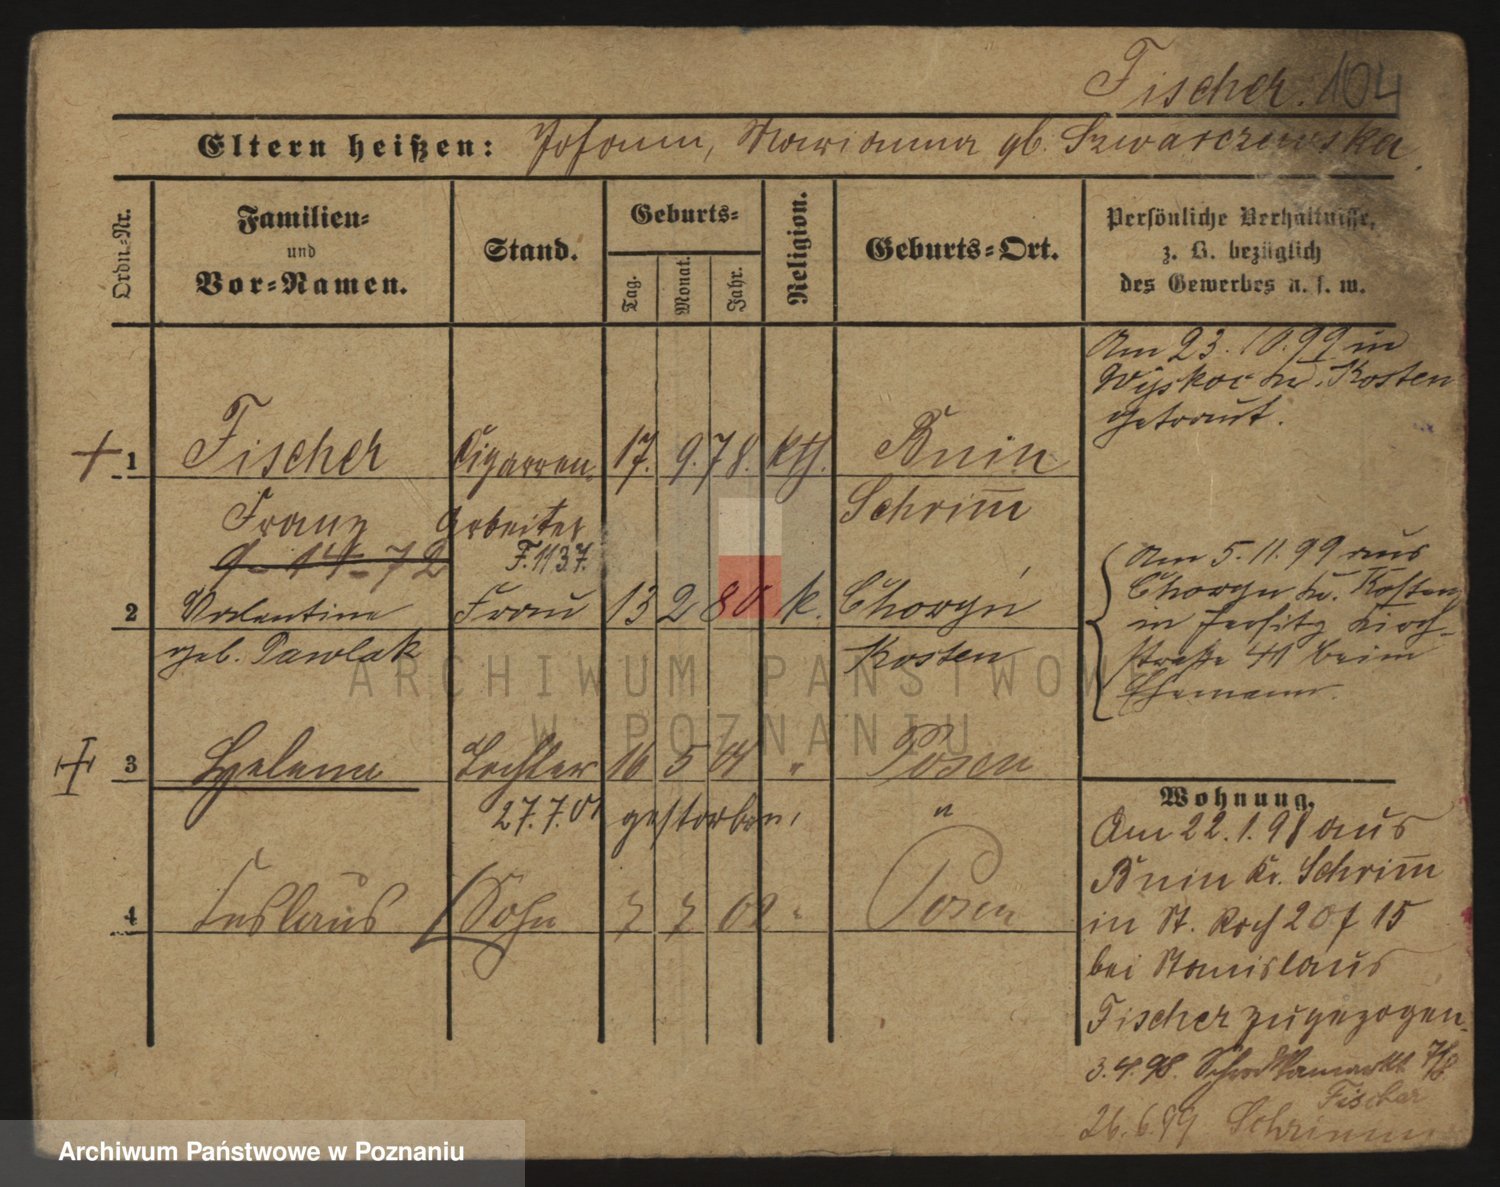 Fischer. 104
Eltern heißen: Johann, Marianna gb. Szwarczewska.
Ordn.-Nr.
Familien- und Vor-Namen.
Stand.
Geburts-
Tag. Monat. Jahr.
Religion.
Geburts-Ort.
Persönliche Verhältnisse, z. B. bezüglich des Gewerbes u. s. w.
Am 23.10.99 in
Wyskoc Kr. Kosten
getraut.
+ 1 Fischer Cigarren- 17. 9. 78. kth. Bnin
Franz Arbeiter Schrim̄
9 - 14 - 72 F. 1137.
2 Valentine Frau 13 2 80 k. Choryń
geb. Pawlak Kosten
Am 5.11.99 aus
Choryn Kr. Kosten
in Jersitz Kirch-
straße 41 beim
Ehemann.
3 Helena Tochter 16 5 01 " Posen
27.7.01 gestorben. "
4 Ceslaus Sohn 7 7 02 " Posen
Wohnung.
Am 22.1.98 aus
Bnin Kr. Schrim̄
in St. Roch 20 f 15
bei Stanislaus
Fischer zugezogen.
3.4.98. 7/8
Fischer
26.6.99 Schrimm
ARCHIWUM PAŃSTWOWE
W POZNANIU
Archiwum Państwowe w Poznaniu